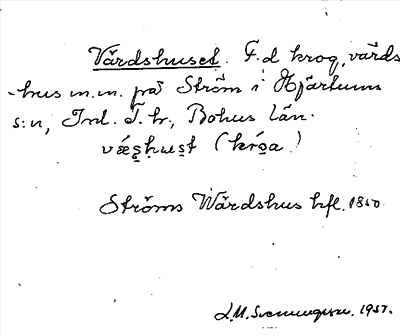 Värdshuset. F.d krog, värds
-hus m.m. på Ström i Hjärtums
s:n, Inl. T. hr, Bohus län.
væs̩hus̩t (kró̩a)
Ströms Wärdshus hfl. 1850
L.M. Svenungsson. 1937.